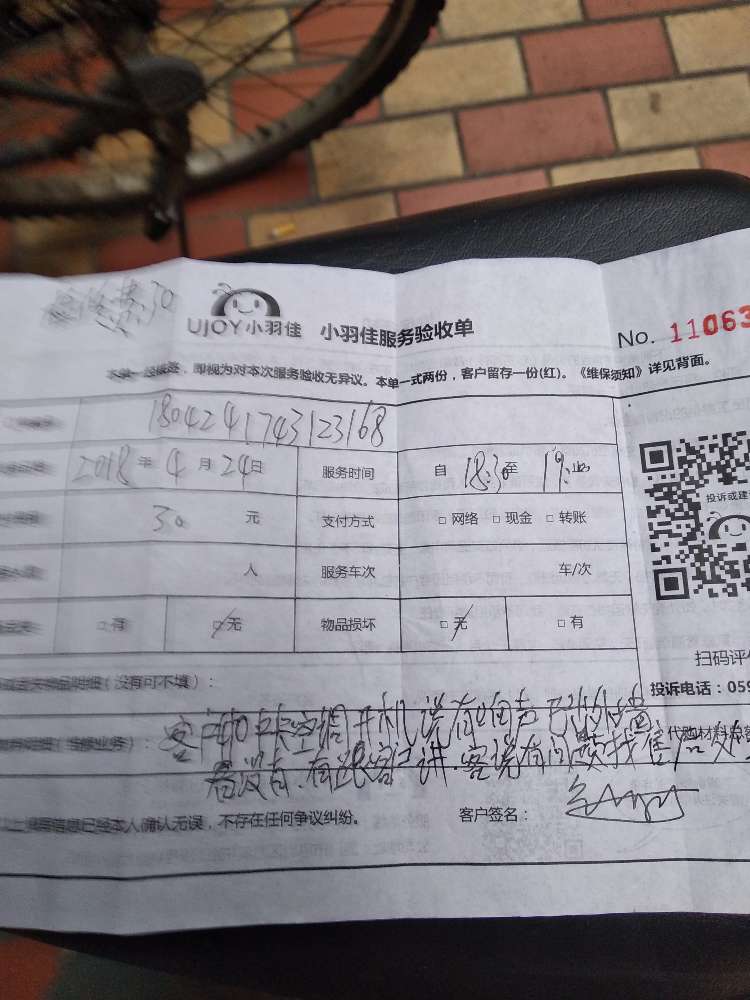 UJOY小羽佳 小羽佳服务验收单
No. 11063
本单一经签,即视为对本次服务验收无异议。本单一式两份,客户留存一份(红)。《维保须知》详见背面。
1804241743123168
2018年4月24日 服务时间 自18:30至19:
30元 支付方式 □网络 □现金 □转账
投诉或建
人 服务车次 车/次
□有 □无 物品损坏 □无 □有
扫码评价
(没有可不填):
投诉电话:059
客户 空调开机说有 声
代购材料总
看没有.有跟客户讲.客说有问题找售后
信息已经本人确认无误,不存在任何争议纠纷。 客户签名: